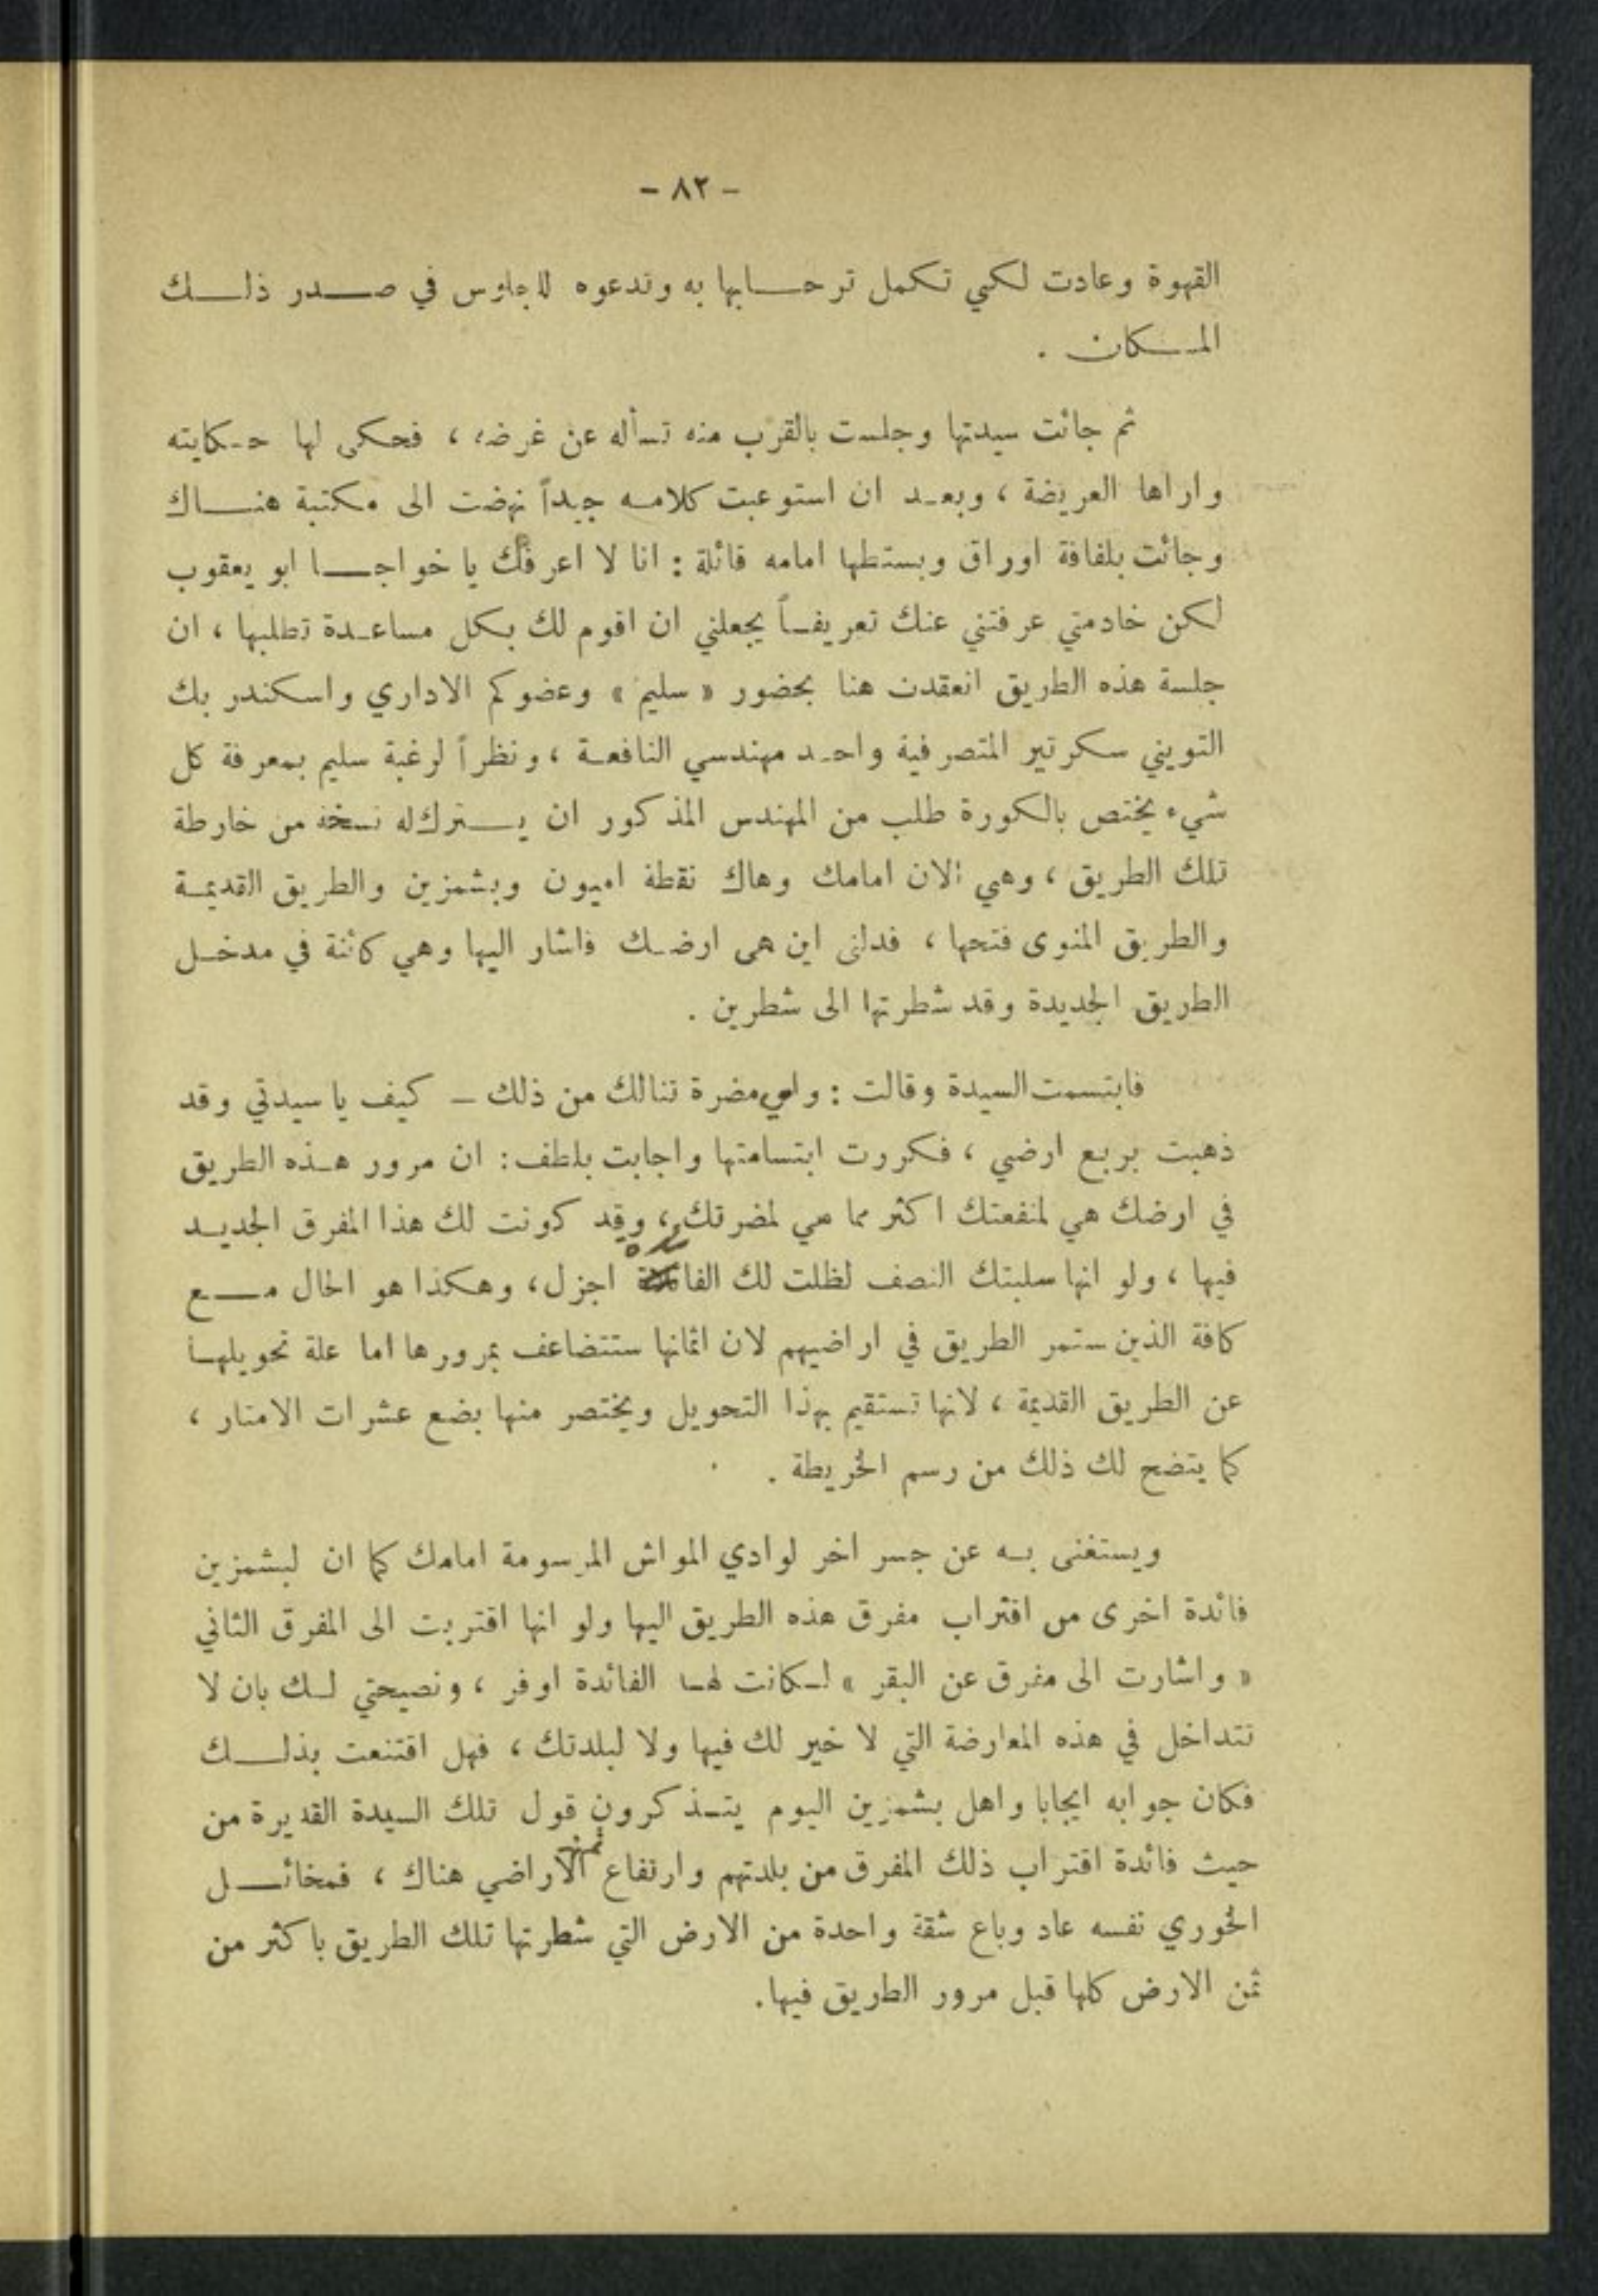 - ٨٢ -
القهوة وعادت لكي تكمل ترحابها به وتدعوه للجلوس في صدر ذلك
المكان .
ثم جائت سيدتها وجلست بالقرب منه تسأله عن غرضه ، فحكى لها حكايته
واراها العريضة ، وبعد ان استوعبت كلامه جيداً نهضت الى مكتبة هناك
وجائت بلفافة اوراق وبستطها امامه قائلة : انا لا اعرفك يا خواجا ابو يعقوب
لكن خادمتي عرفتني عنك تعريفاً يجعلني ان اقوم لك بكل مساعدة تطلبها ، ان
جلسة هذه الطريق انعقدت هنا بحضور « سليم » وعضوكم الاداري واسكندر بك
التويني سكرتير المتصرفية واحد مهندسي النافعة ، ونظراً لرغبة سليم بمعرفة كل
شيء يختص بالكورة طلب من المهندس المذكور ان يترك له نسخة من خارطة
تلك الطريق ، وهي الان امامك وهاك نقطة اميون وبشمزين والطريق القديمة
والطريق المنوى فتحها ، فدلني اين هي ارضك فاشار اليها وهي كائنة في مدخل
الطريق الجديدة وقد شطرتها الى شطرين .
فابتسمت السيدة وقالت : واي مضرة تنالك من ذلك – كيف يا سيدتي وقد
ذهبت بربع ارضي ، فكررت ابتسامتها واجابت بلطف : ان مرور هذه الطريق
في ارضك هي لمنفعتك اكثر مما هي لمضرتك ، وقد كونت لك هذا المفرق الجديد
فيها ، ولو انها سلبتك النصف لظلت لك الفائدة اجزل ، وهكذا هو الحال مع
كافة الذين ستمر الطريق في اراضيهم لان اثمانها ستتضاعف بمرورها اما علة تحويلها
عن الطريق القديمة ، لانها تستقيم بهذا التحويل ويختصر منها بضع عشرات الامتار ،
كما يتضح لك ذلك من رسم الخريطة .
ويستغنى به عن جسر اخر لوادي المواش المرسومة امامك كما ان لبشمزين
فائدة اخرى من اقتراب مفرق هذه الطريق اليها ولو انها اقتربت الى المفرق الثاني
« واشارت الى مفرق عن البقر » لكانت لها الفائدة اوفر ، ونصيحتي لك بان لا
تتداخل في هذه المعارضة التي لا خير لك فيها ولا لبلدتك ، فهل اقتنعت بذلك
فكان جوابه ايجابا واهل بشمزين اليوم يتذكرون قول تلك السيدة القديرة من
حيث فائدة اقتراب ذلك المفرق من بلدتهم وارتفاع ثمن الاراضي هناك ، فمخائل
الخوري نفسه عاد وباع شقة واحدة من الارض التي شطرتها تلك الطريق باكثر من
ثمن الارض كلها قبل مرور الطريق فيها .